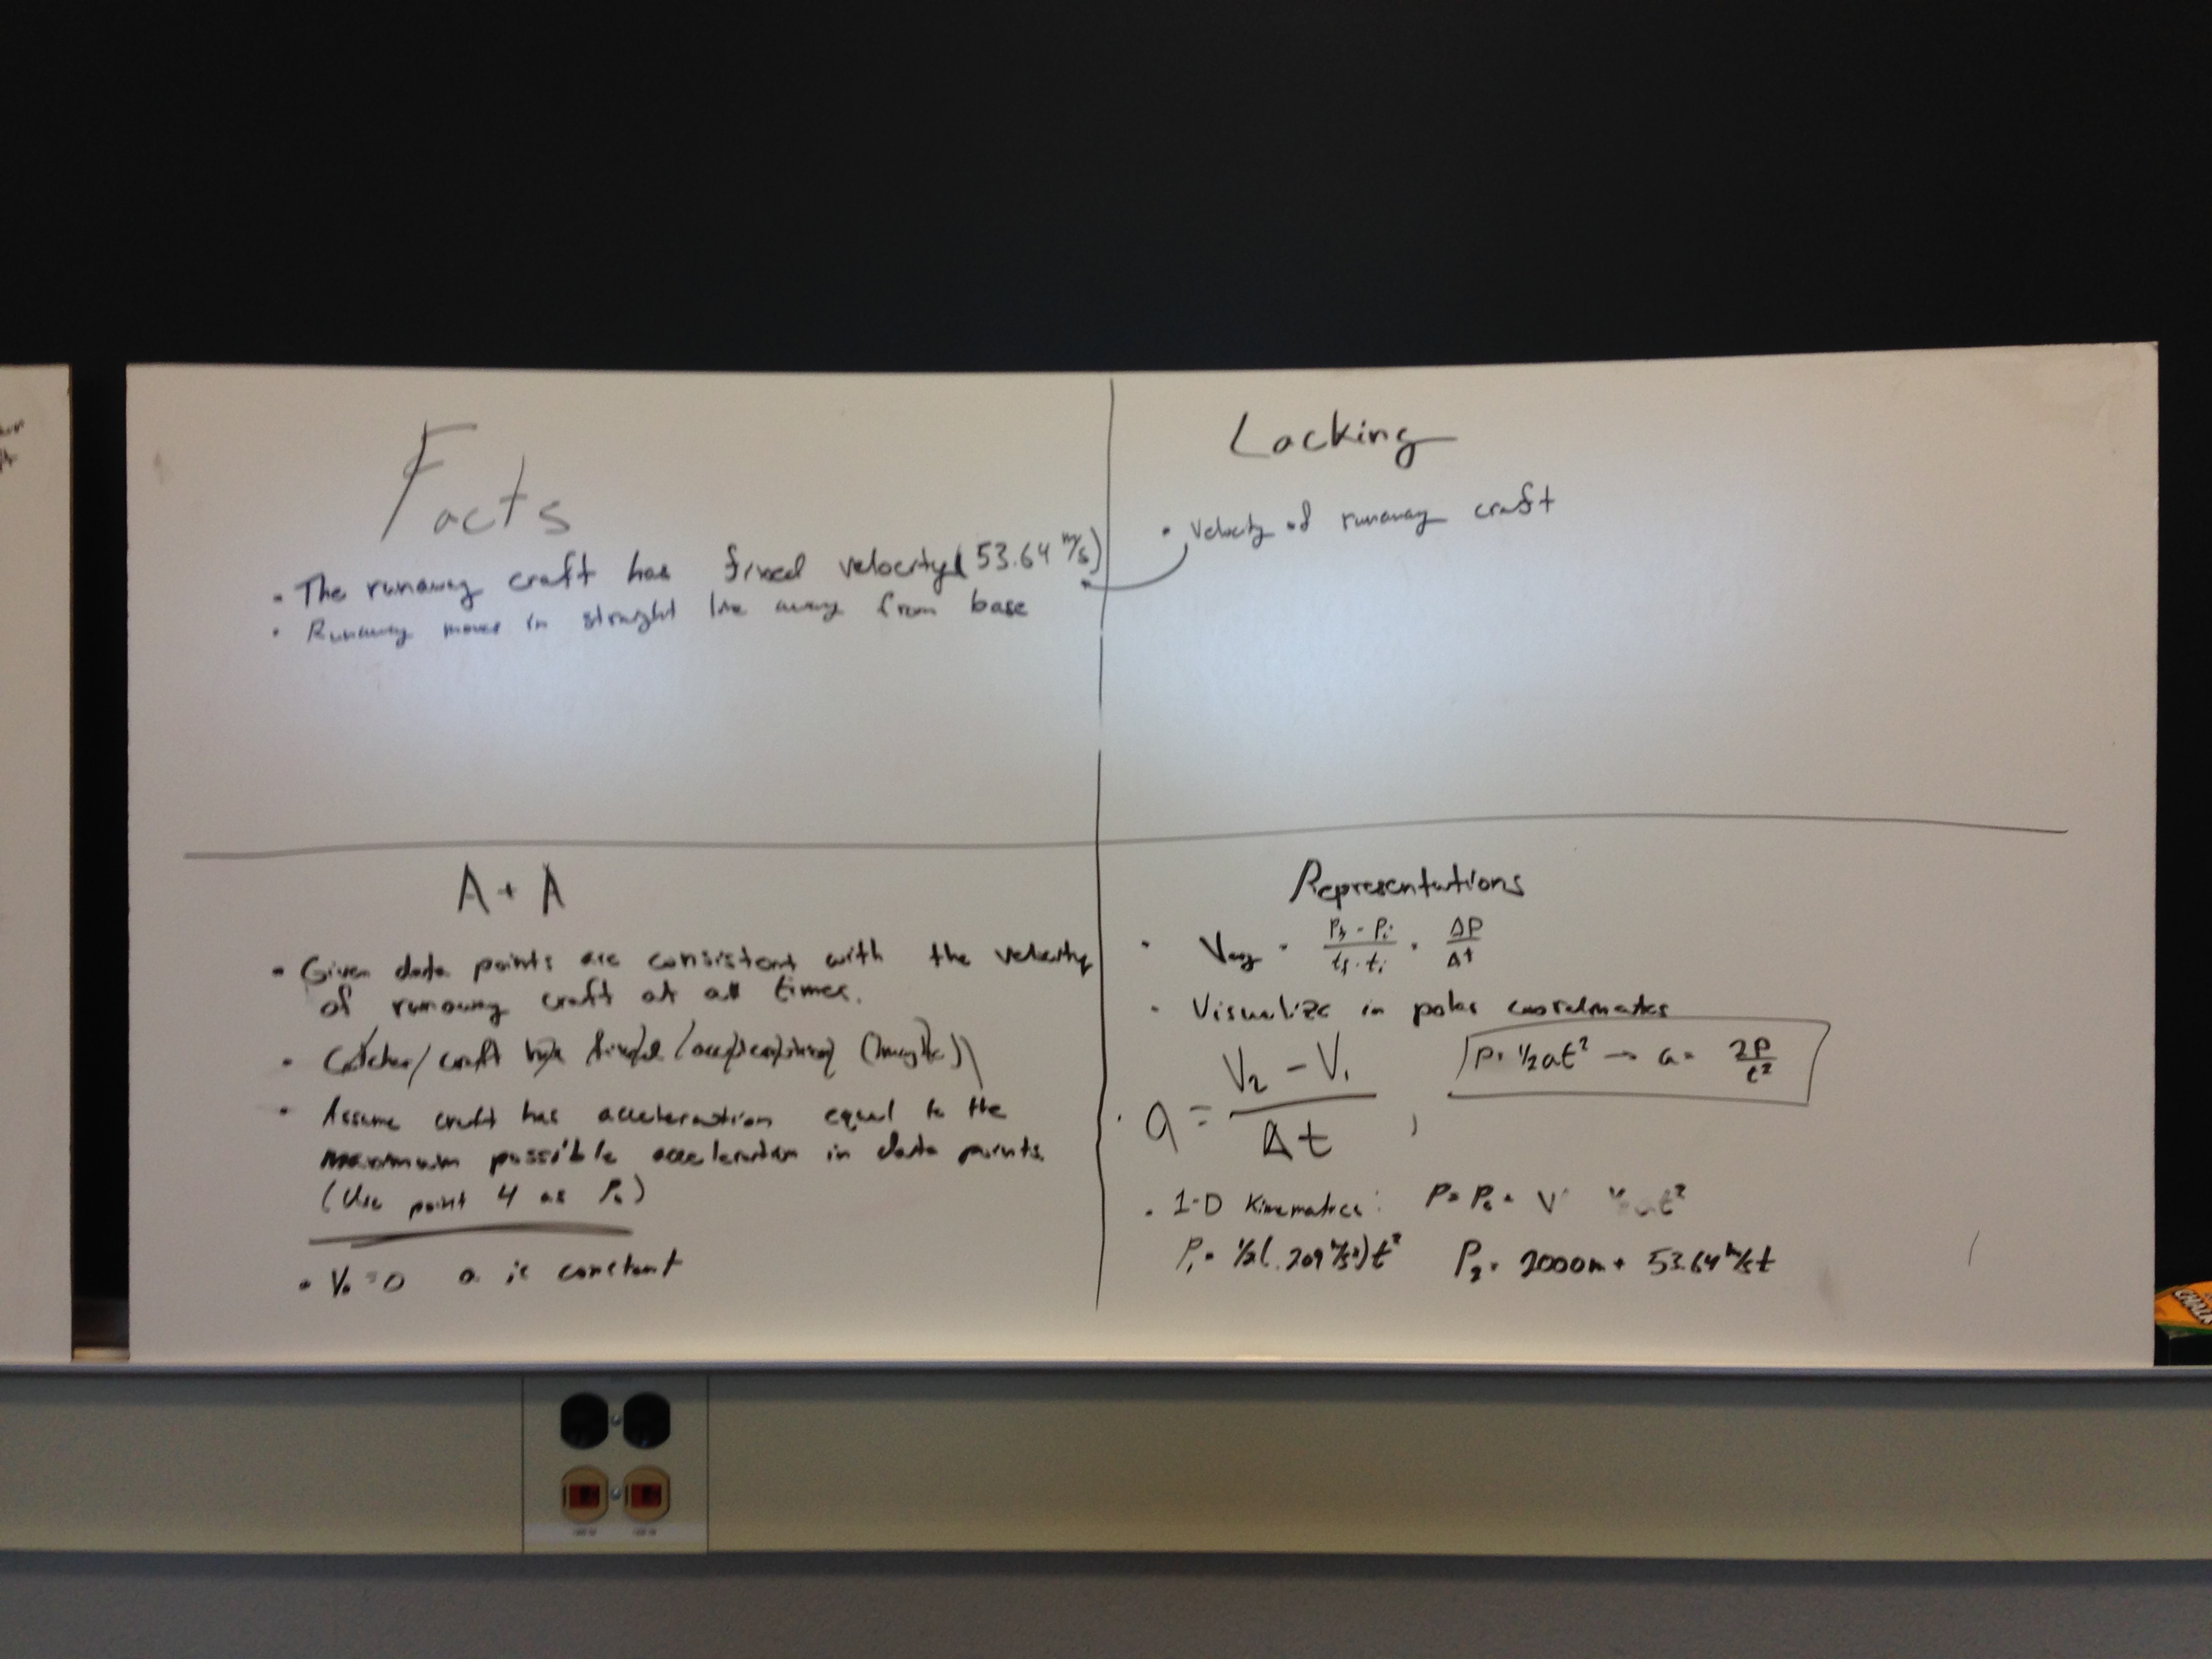 Facts
• The runaway craft has fixed velocity (53.64 m/s)
• Runaway moves in straight line away from base
Lacking
• Velocity of runaway craft
A + A
• Given data points are consistent with the velocity
of runaway craft at all times.
• Catcher craft fixed
• Assume craft has acceleration equal to the
maximum possible acceleration in data points.
(Use point 4 as P₀)
• V₀ = 0 a is constant
Representations
• Vavg = (Pf - Pi)/(tf - ti) = ΔP/Δt
• Visualize in polar coordinates
• a = (V₂ - V₁)/Δt , P = ½at² → a = 2P/t²
• 1-D Kinematics: P = P₀ + V at²
P₁ = ½(.209 m/s²)t² P₂ = 2000m + 53.64 m/s t
CHALK